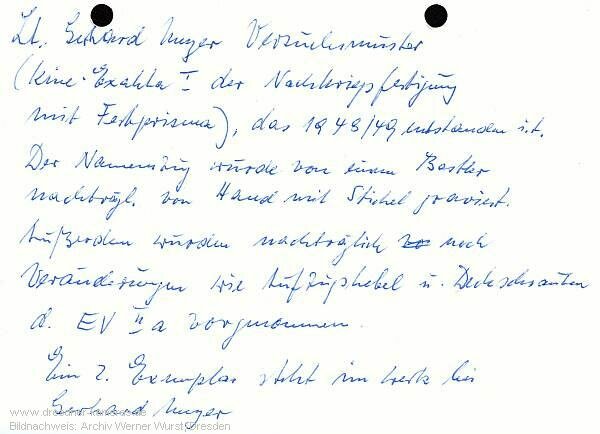 Lt. Gerhard Unger Versuchsmuster
(keine Exakta I der Nachkriegsfertigung
mit Festprisma), das 1948/49 entstanden ist.
Der Namenszug wurde von einem Bastler
nachträgl. von Hand mit Stichel graviert.
Außerdem wurden nachträglich noch
Veränderungen wie Aufzughebel u. Deckschrauben
d. EV IIa vorgenommen.
Ein 2. Exemplar steht im Werk bei
Gerhard Unger
Bildnachweis: Archiv Werner Wurst, Dresden